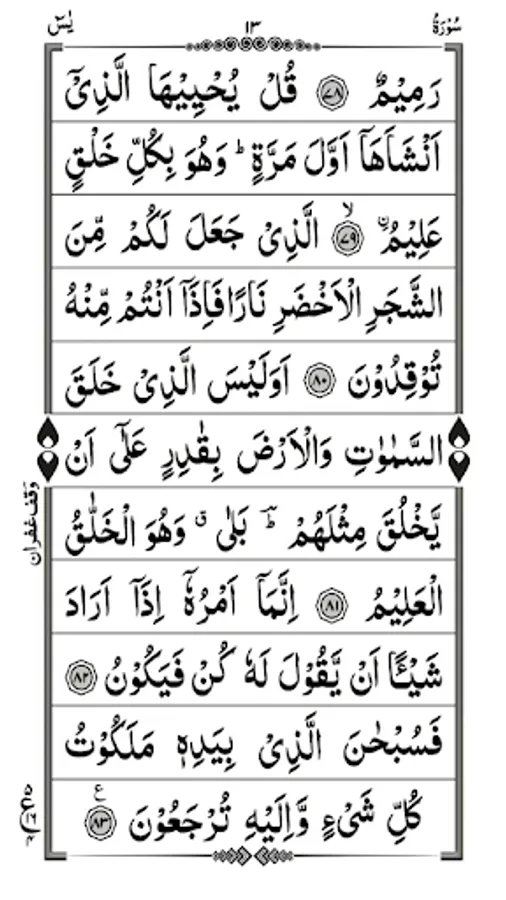 سُوْرَةُ ١٣ يٰسٓ
رَمِيْمٌ ﴿٧٨﴾ قُلْ يُحْيِيْهَا الَّذِيْۤ
اَنْشَاَهَاۤ اَوَّلَ مَرَّةٍ ؕ وَهُوَ بِكُلِّ خَلْقٍ
عَلِيْمُ ۨ ﴿٧٩﴾ ۙ الَّذِيْ جَعَلَ لَكُمْ مِّنَ
الشَّجَرِ الْاَخْضَرِ نَارًا فَاِذَاۤ اَنْتُمْ مِّنْهُ
تُوْقِدُوْنَ ﴿٨٠﴾ اَوَلَيْسَ الَّذِيْ خَلَقَ
السَّمٰوٰتِ وَالْاَرْضَ بِقٰدِرٍ عَلٰۤى اَنْ
يَّخْلُقَ مِثْلَهُمْ ؕ بَلٰى ۗ وَهُوَ الْخَلّٰقُ
الْعَلِيْمُ ﴿٨١﴾ اِنَّمَاۤ اَمْرُهٗۤ اِذَاۤ اَرَادَ
شَيْـًٔا اَنْ يَّقُوْلَ لَهٗ كُنْ فَيَكُوْنُ ﴿٨٢﴾
فَسُبْحٰنَ الَّذِيْ بِيَدِهٖ مَلَكُوْتُ
كُلِّ شَيْءٍ وَّاِلَيْهِ تُرْجَعُوْنَ ﴿٨٣﴾ ع
وقف غفران